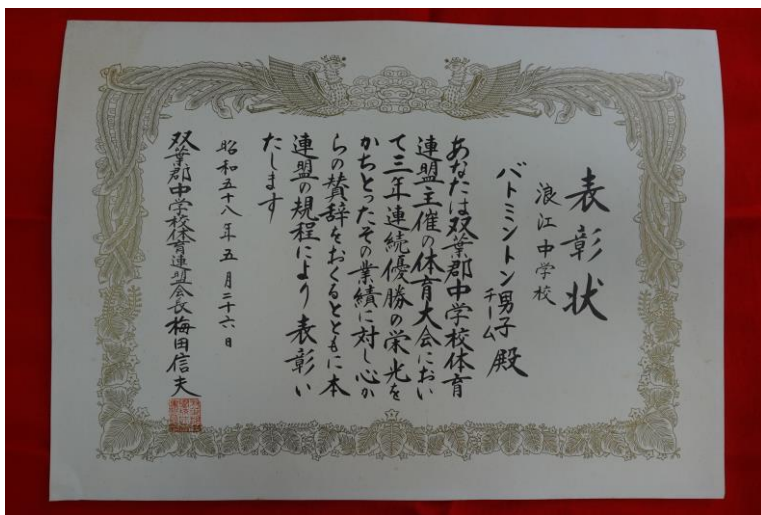 表彰状
浪江中学校
バトミントン男子チーム殿
あなたは双葉郡中学校体育
連盟主催の体育大会におい
て三年連続優勝の栄光を
かちとったその業績に対し心か
らの賛辞をおくるとともに本
連盟の規程により表彰い
たします
昭和五十八年五月二十六日
双葉郡中学校体育連盟会長梅田信夫